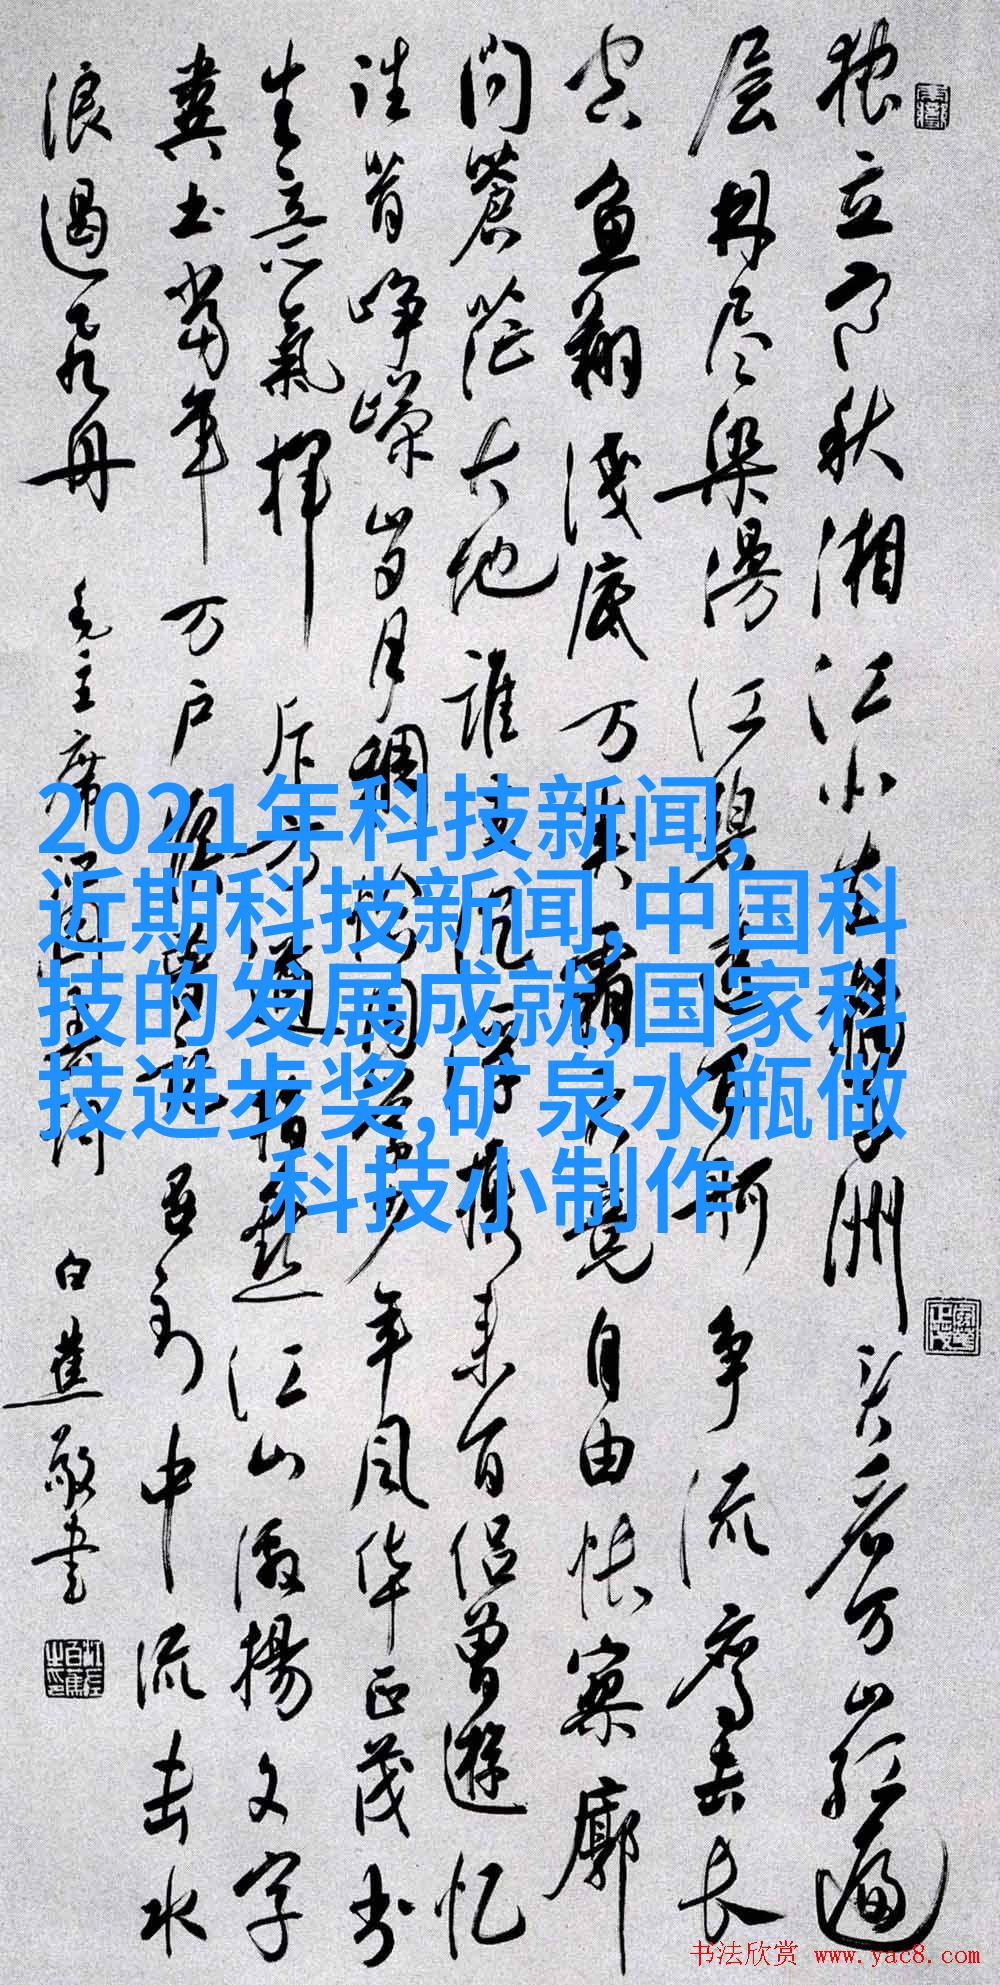 独立寒秋湘江北去橘子洲头看万山红遍
层林尽染漫江碧透百舸争流鹰击长
空鱼翔浅底万类霜天竞自由怅寥廓
问蒼茫大地谁主沉浮携来百侣曾遊忆
往昔峥嵘岁月稠恰同学少年风华正茂书
生意氣挥斥方遒指点江山激揚文字
粪土当年万户侯曾记否到中流击水
浪遏飞舟 毛主席词沁园春 白蕉敬书
2021年科技新闻,
近期科技新闻,中国科
技的发展成就,国家科
技进步奖,矿泉水瓶做
科技小制作
书法欣赏 www.yac8.com